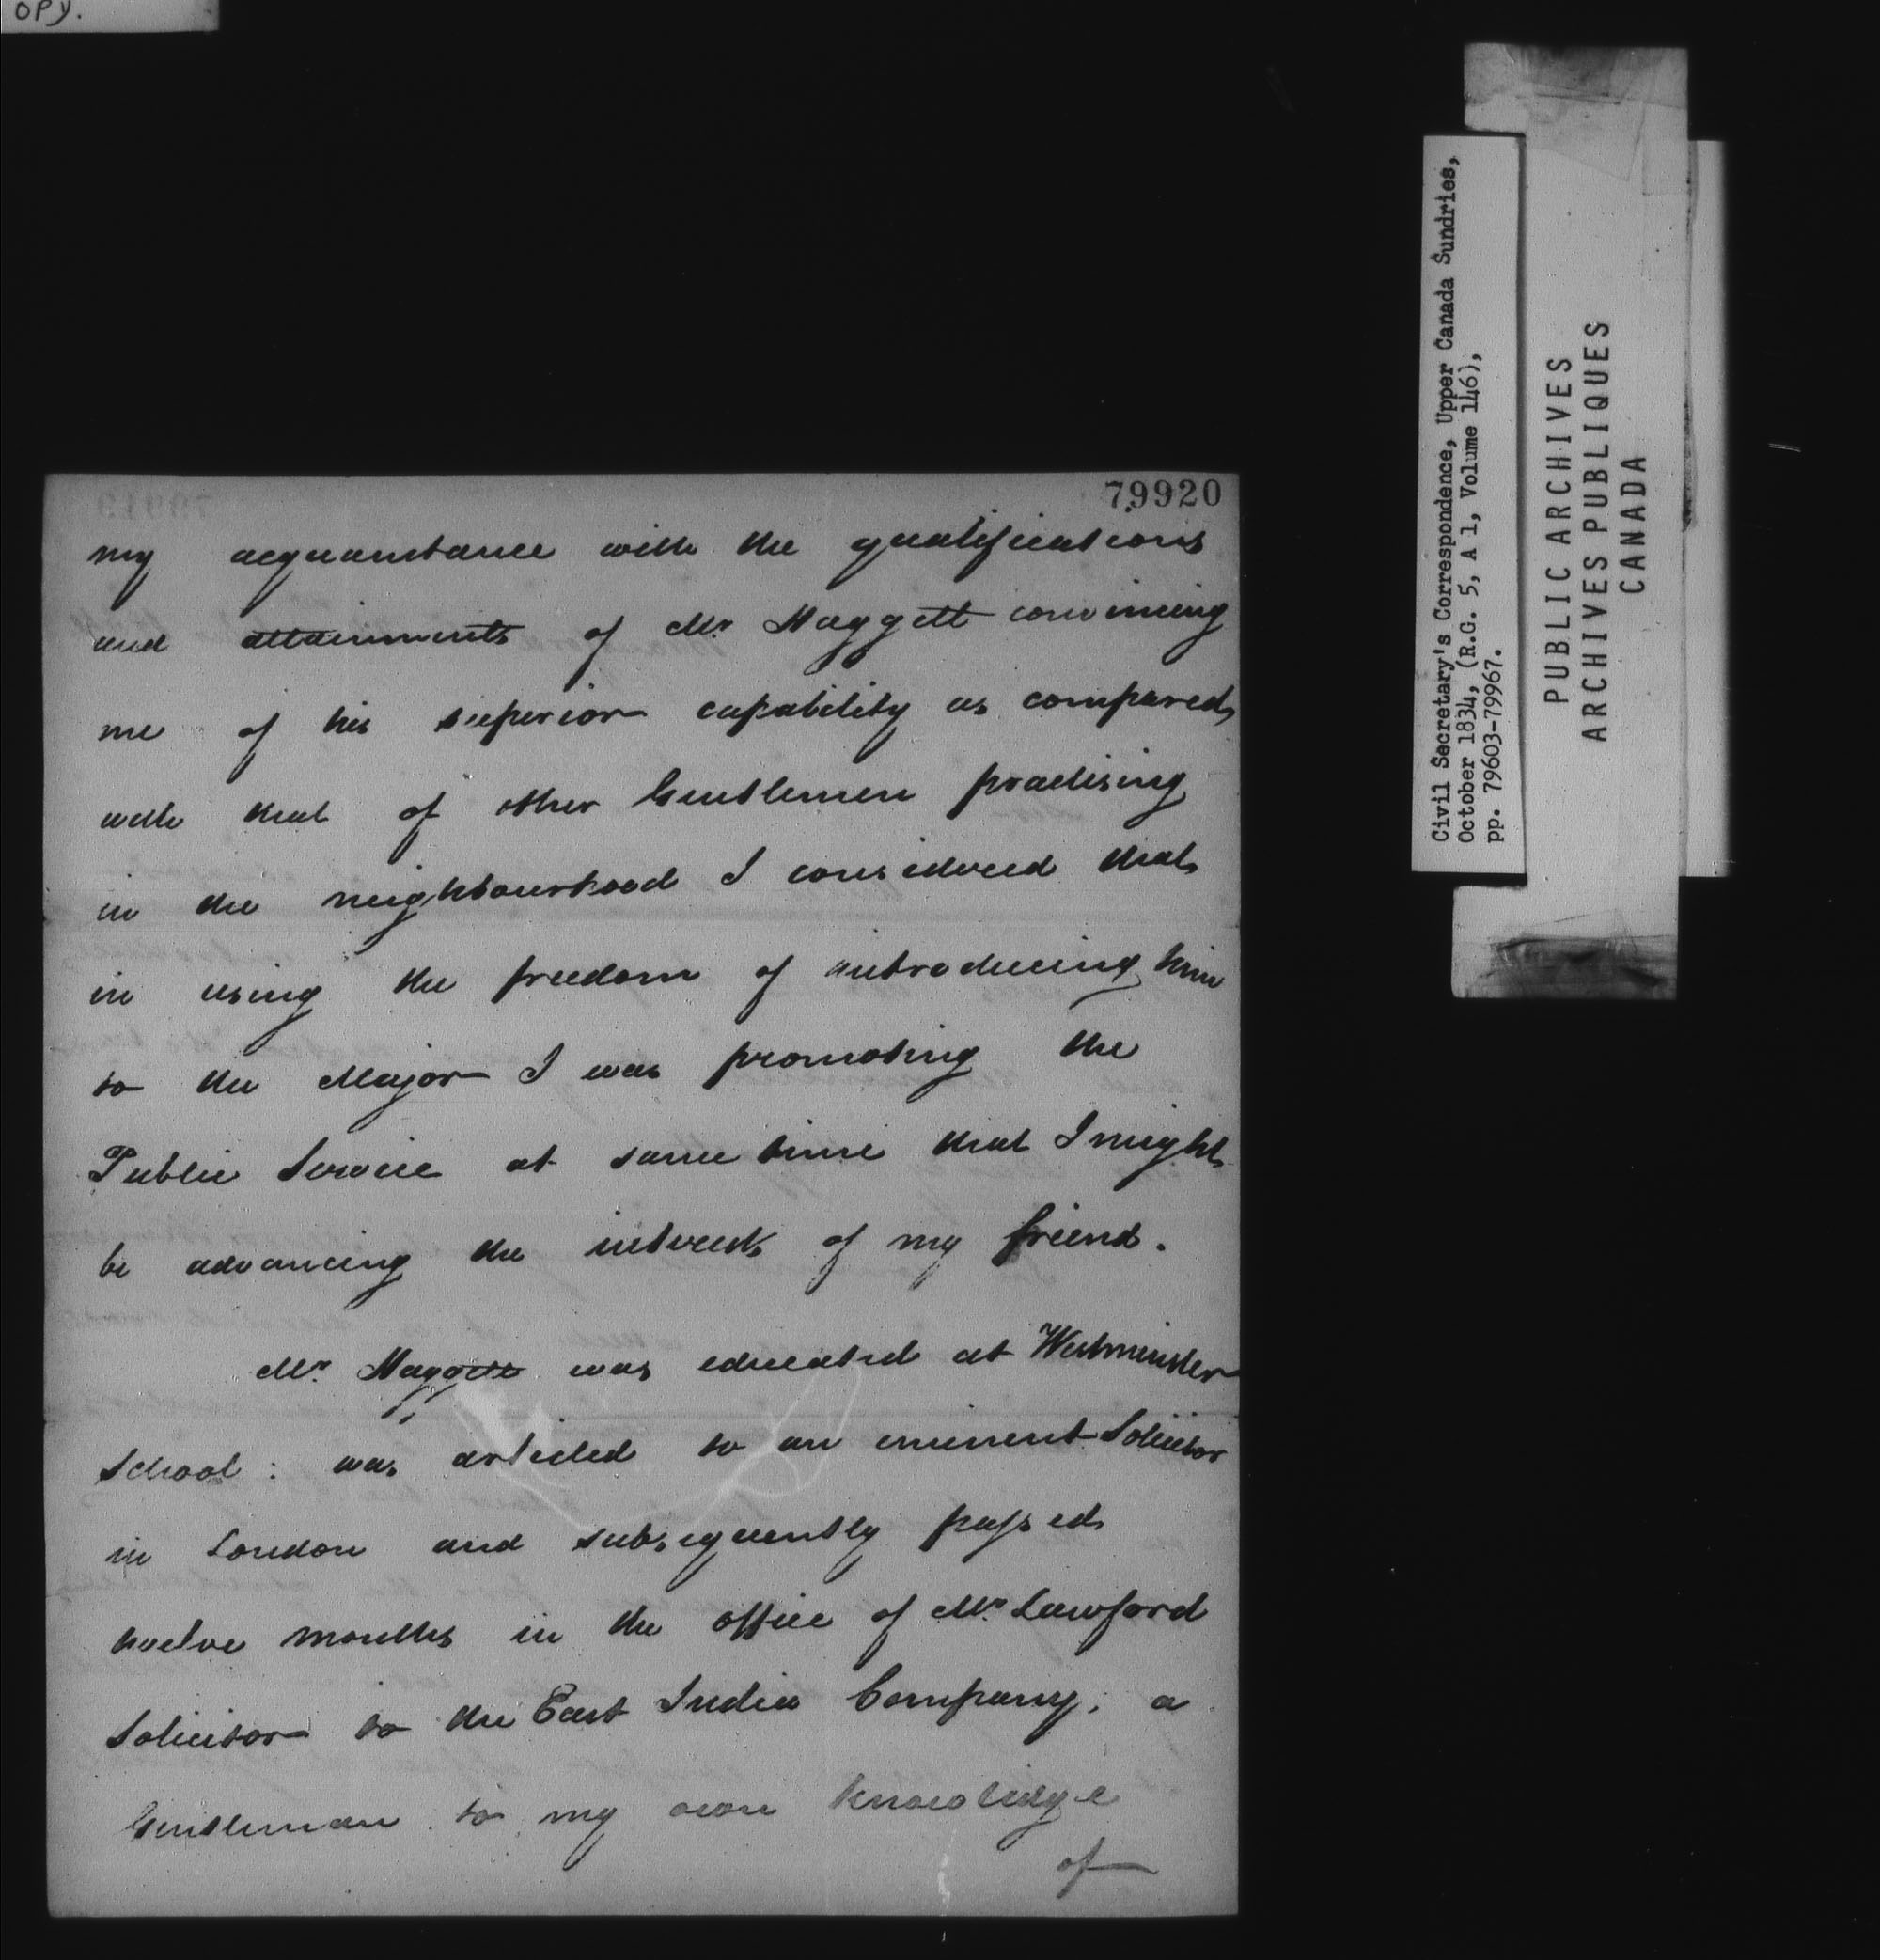 opy.
79920
my acquaintance with the qualifications
and attainments of Mr. Haggett convincing
me of his superior capability as compared
with that of other Gentlemen practising
in the neighbourhood I considered that
in using the freedom of introducing him
to the Major I was promoting the
Public Service at same time that I might
be advancing the interests of my friend.
Mr. Haggett was educated at Westminster
School: was articled to an eminent Solicitor
in London and subsequently passed
twelve months in the office of Mr. Lawford
Solicitor to the East India Company; a
Gentleman to my own knowledge
of
Civil Secretary's Correspondence, Upper Canada Sundries,
October 1834, (R.G. 5, A 1, Volume 146),
pp. 79603-79967.
PUBLIC ARCHIVES
ARCHIVES PUBLIQUES
CANADA